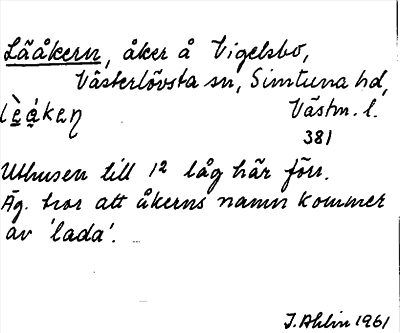 Lååkern, åker å Vigelsbo,
Västerlövsta sn, Simtuna hd,
Västm. l.
381
Uthusen till 12 låg här förr.
Äg. tror att åkerns namn kommer
av 'lada'.
J. Ahlin 1961